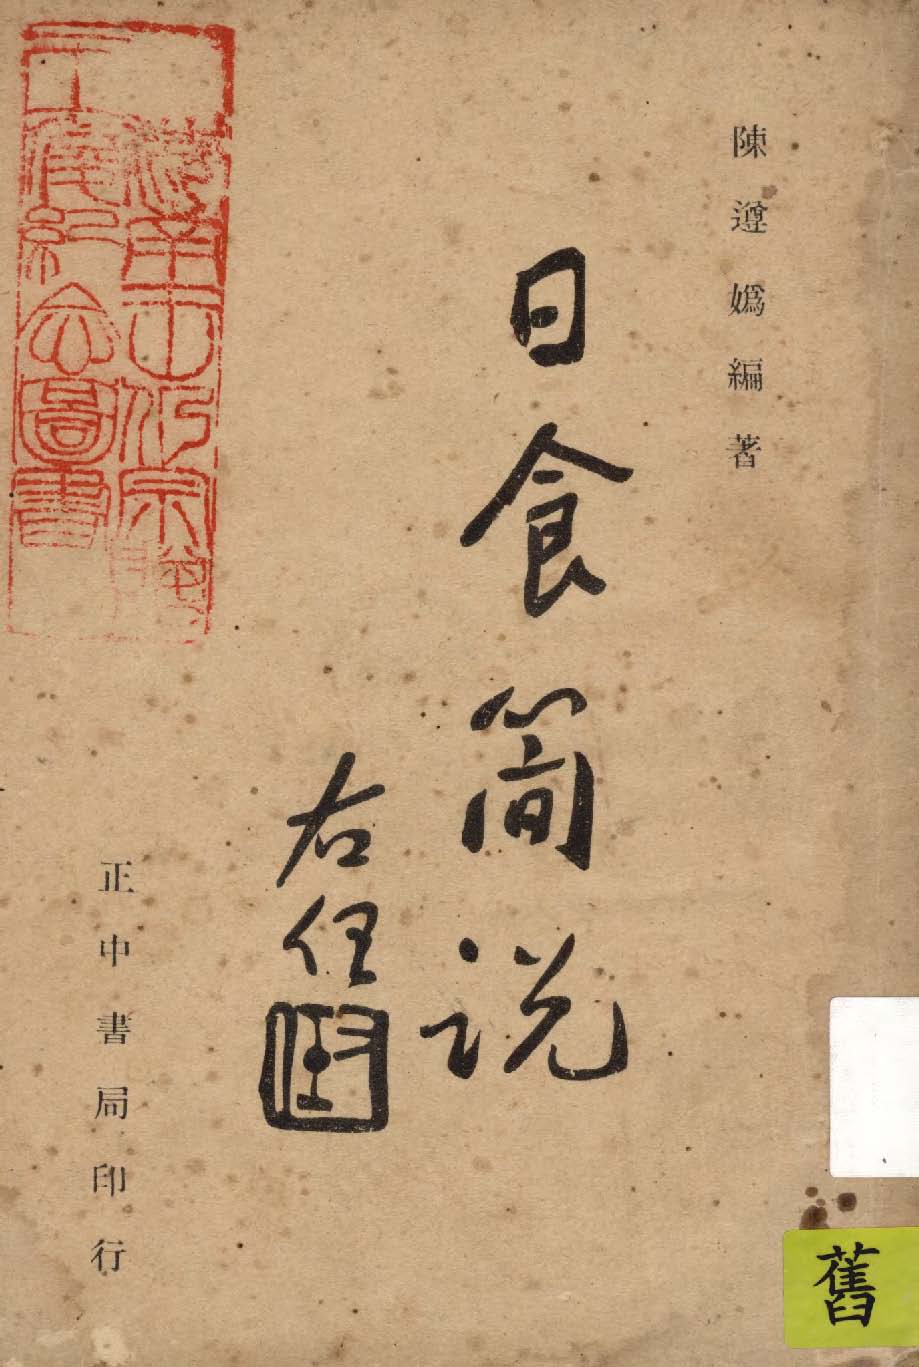 陳遵媯編著
日食簡說
右任
圖書
正中書局印行
舊